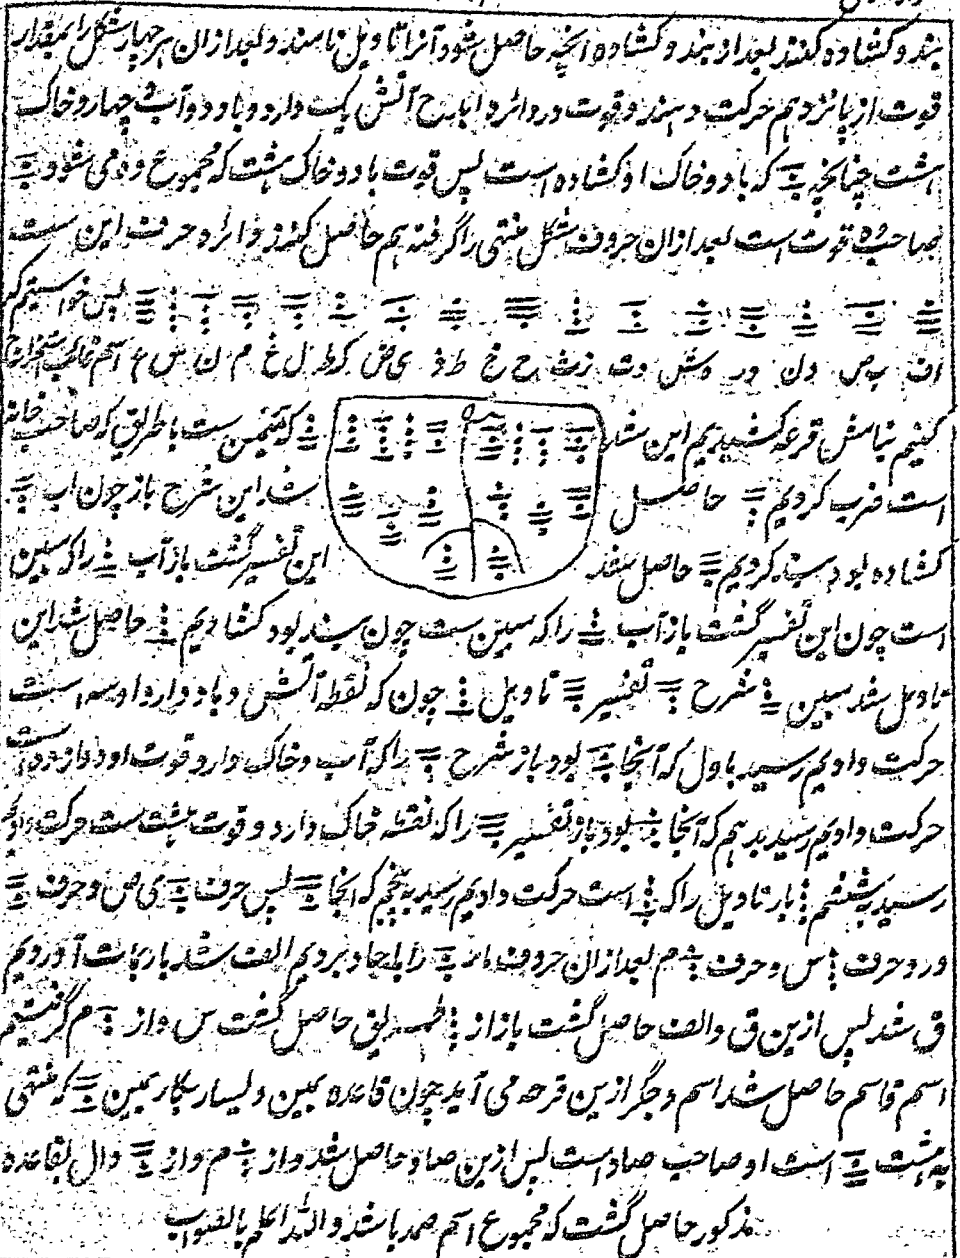 بند و کشاده کنند بعد از بند و کشاده انچه حاصل شود آنرا تاویل نامند و بعد ازان هر چهار شکل را بمقدار
قوت از پانزدهم حرکت دهند و قوت در دائره ابدح آتش یک دارد و باد دو و آب چهار و خاک
هشت چنانچه که باد و خاک او کشاده است پس قوت باد و خاک هشت که مجموع وه می شود
صاحب ده قوت است بعد ازان حروف شکل منتهی را گرفته اسم حاصل کنند و دائره حرف این ست
پس خواستیم که
اف ب ص دل ور ه ش وت زث ح خ ط ذ ی ض ک ظ ل غ م ن س ع اسم غائب استخراج
کنیم بنامش قرعه کشیدیم این شد که تیمین ست باطریق که صاحب خانه
است ضرب کردیم حاصل شد این شرح باز چون آب
کشاده بود بند کردیم حاصل شد این تفسیر گشت باز آب را که مبین
است چون این تفسیر گشت باز آب را که مبین ست چون بسته بود کشادیم حاصل شد این
تاویل شد مبین شرح تفسیر تاویل چون که نقطه آتش و باد دارد او سه است
حرکت دادیم رسید باول که آنجا بود باز شرح را که آب و خاک دارد قوت او دوازده است
حرکت دادیم رسید بدهم که آنجا بود باز تفسیر را که نقطه خاک دارد و قوت هشت ست حرکت دادیم
رسید بششم باز تاویل را که است حرکت دادیم رسید به پنجم که آنجا پس حرف ی ض و حرف
ور و حرف س و حرف م بعد ازان حروف از را بآحاد بردیم الف شد باز بمآت آوردیم
ق شد پس ازین ق و الف حاصل گشت باز از طریق حاصل گشت س و از م گرفتیم
اسم قاسم حاصل شد اسم دیگر ازین قرعه می آید چون قاعده یمین و یسار بکار بریم که منتهی
به هشت است او صاحب صاد است پس ازین صاد حاصل شد و از م و از دال بقاعده
مذکور حاصل گشت که مجموع اسم صمد باشد والله اعلم بالصواب